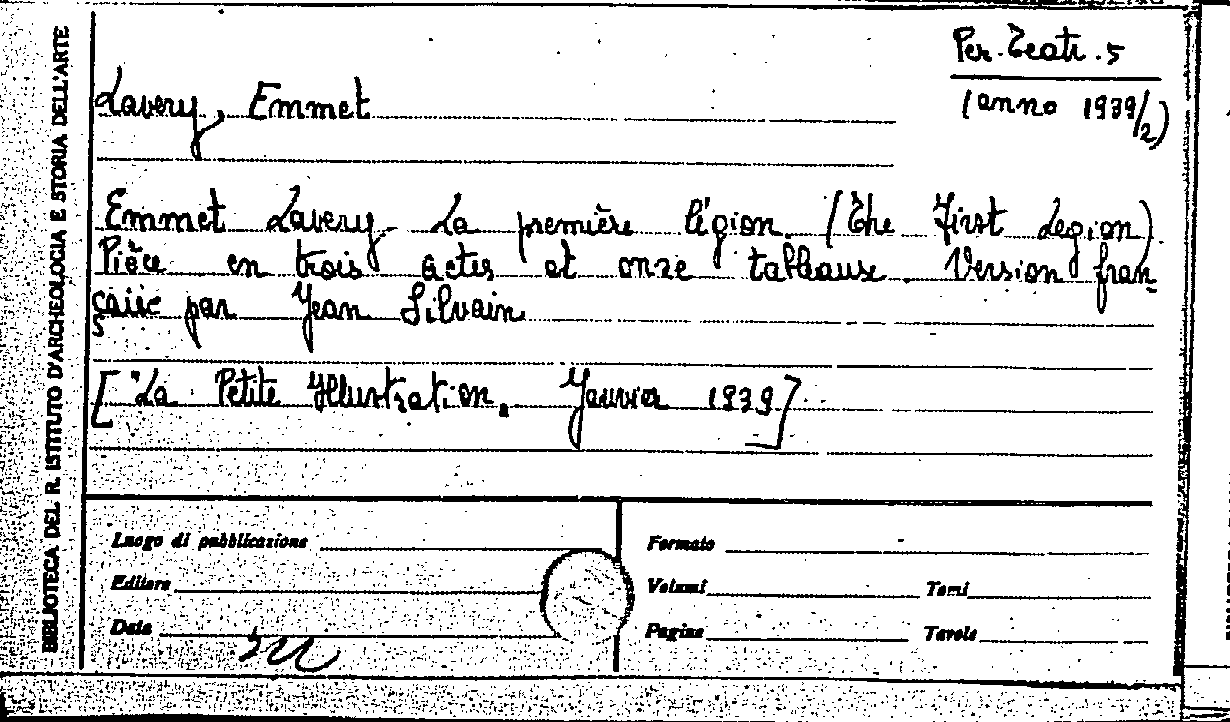 BIBLIOTECA DEL R. ISTITUTO D'ARCHEOLOGIA E STORIA DELL'ARTE
Per. Teatr. 5
(anno 1939/2)
Lavery, Emmet
Emmet Lavery. La première légion. (The First Legion)
Pièce en trois actes et onze tableaux. Version fran-
çaise par Jean Silvain
["La Petite Illustration" Janvier 1939]
Luogo di pubblicazione
Editore
Data
Formato
Volumi Tomi
Pagine Tavole